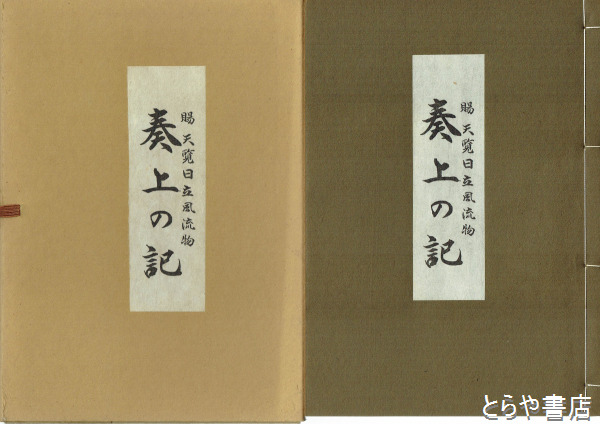 賜 天覧日立風流物
奏上の記
賜 天覧日立風流物
奏上の記
とらや書店